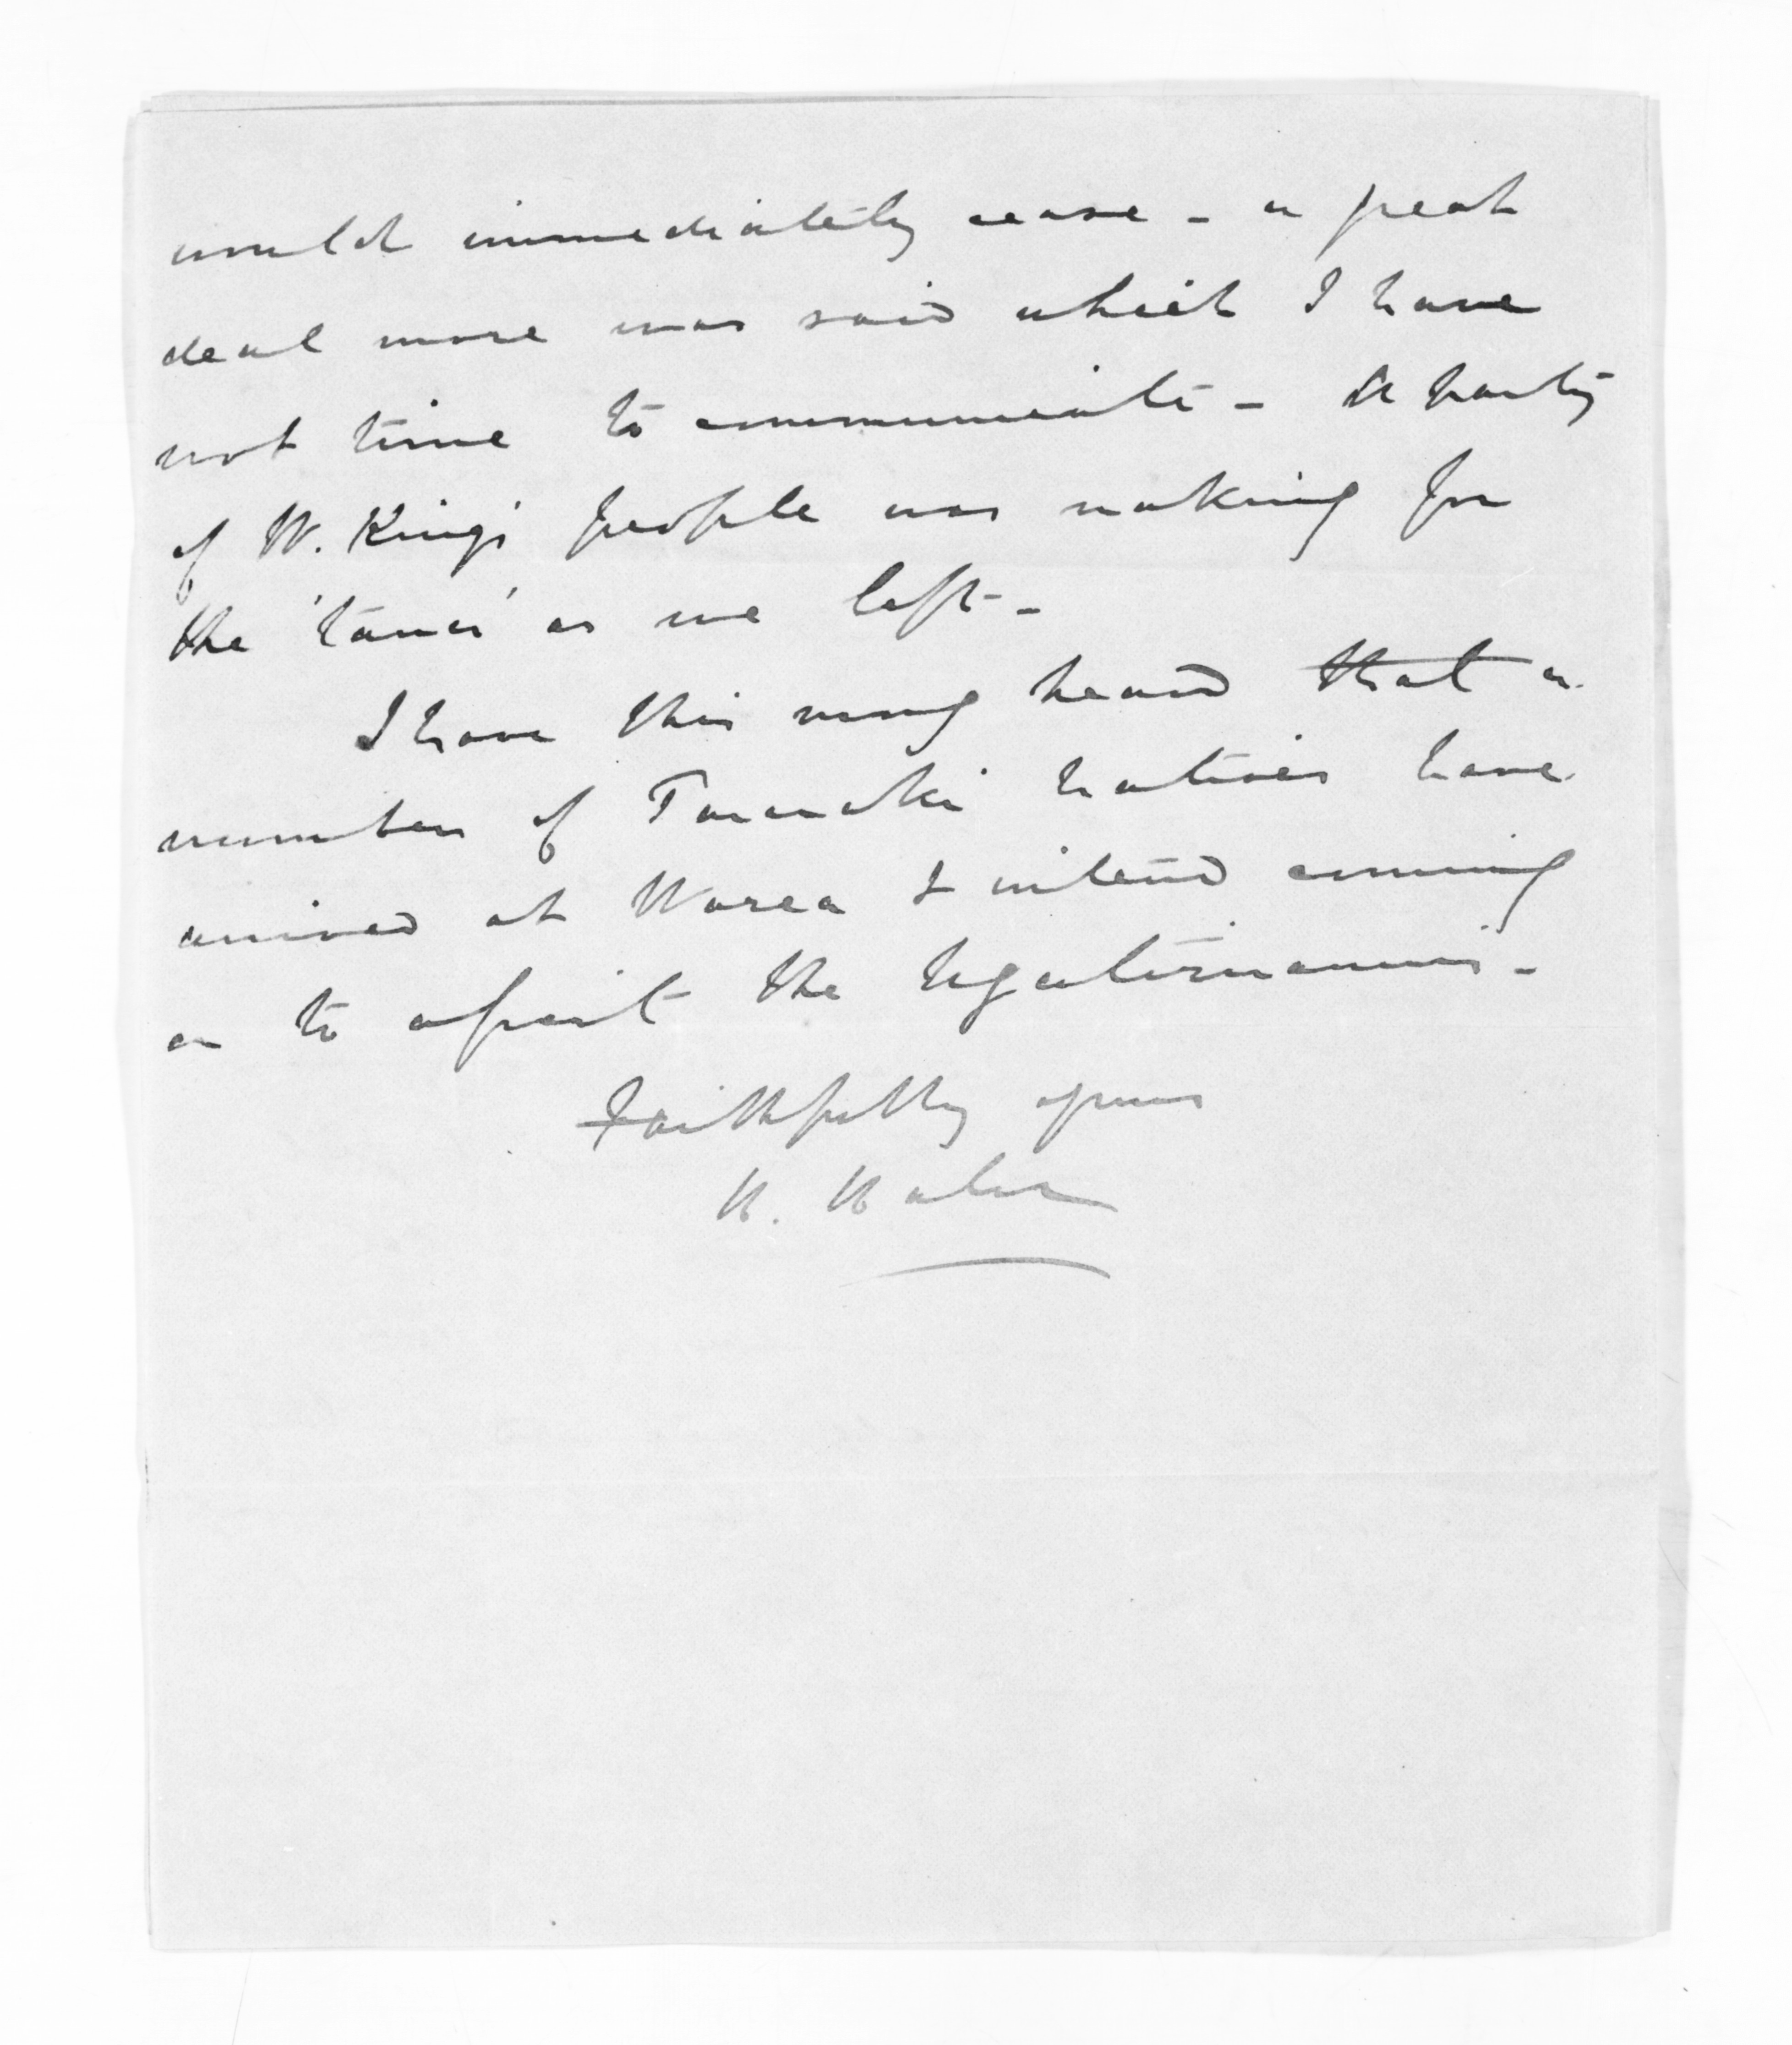 would immediately cease - a great
deal more was said which I have
not time to communicate - A party
of W. King's people was making for
the 'taua' as we left -
I have this mng heard that a
number of Taranaki natives have
arrived at Warea & intend coming
on to assist the Ngatiruanuis -
Faithfully yours
H. Halse